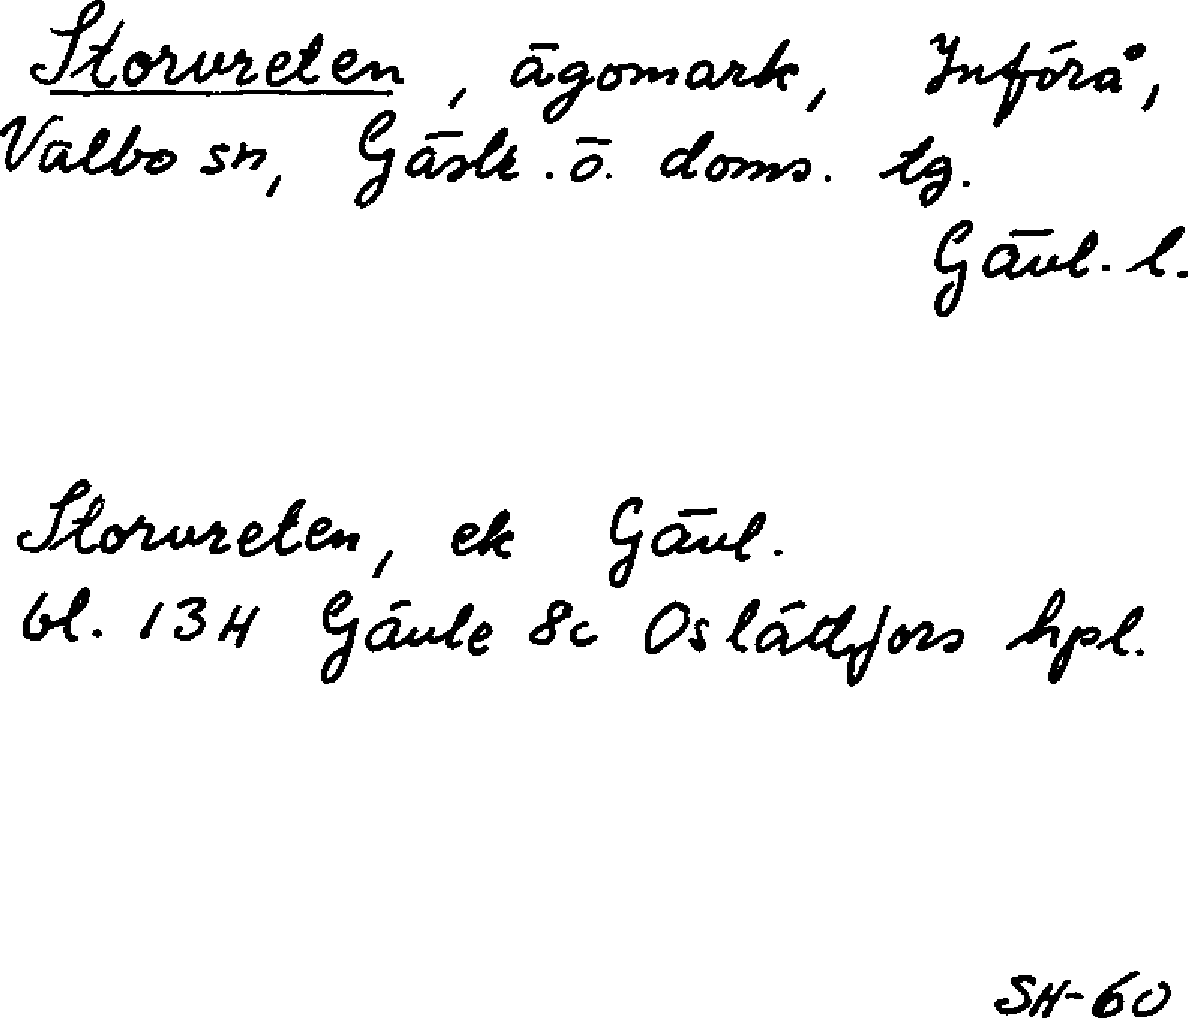 Storvreten, ägomark, Införå,
Valbo sn, Gästr. ö. doms. tg.
Gävl. l.
Storvreten, ek Gävl.
bl. 13H Gävle 8c Oslättfors hpl.
SH-60